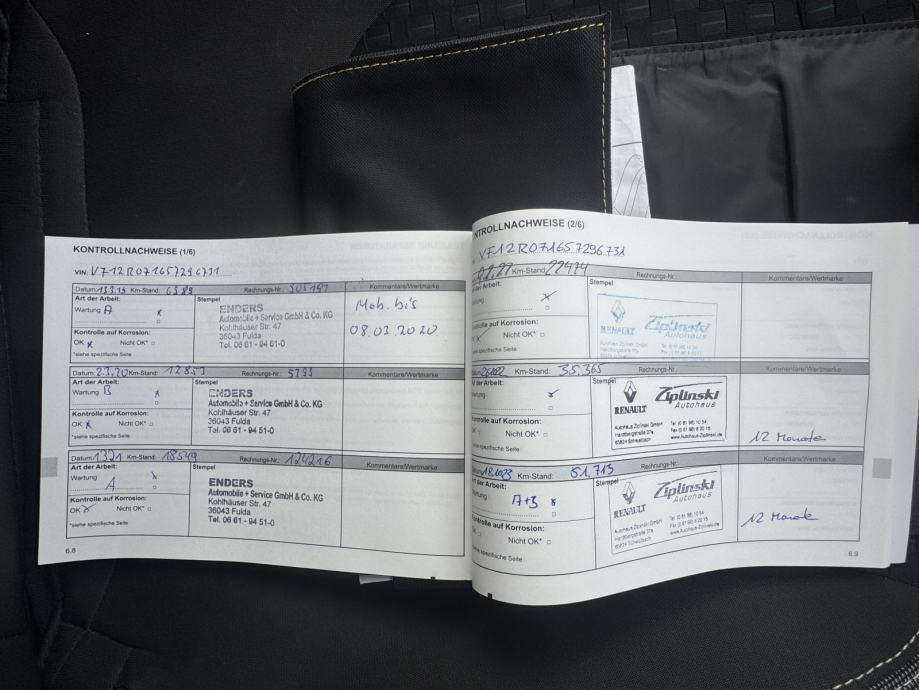 KONTROLLNACHWEISE (1/6)
VIN: VF12R071657296731
Datum: 13.3.19 Km-Stand: 6589 Rechnungs-Nr. Kommentare/Wertmarke
Art der Arbeit: Stempel
Wartung A x
ENDERS
Automobile + Service GmbH & Co. KG
Kohlhäuser Str. 47
36043 Fulda
Tel. 06 61 - 94 51-0
Mob. bis
08.03.2020
Kontrolle auf Korrosion:
OK x Nicht OK* □
*siehe spezifische Seite
Datum: 2.3.20 Km-Stand: 12853 Rechnungs-Nr. Kommentare/Wertmarke
Art der Arbeit: Stempel
Wartung B x
ENDERS
Automobile + Service GmbH & Co. KG
Kohlhäuser Str. 47
36043 Fulda
Tel. 06 61 - 94 51-0
Kontrolle auf Korrosion:
OK x Nicht OK* □
*siehe spezifische Seite
Datum: 1.3.21 Km-Stand: 18549 Rechnungs-Nr. 124216 Kommentare/Wertmarke
Art der Arbeit: Stempel
Wartung
A
ENDERS
Automobile + Service GmbH & Co. KG
Kohlhäuser Str. 47
36043 Fulda
Tel. 06 61 - 94 51-0
Kontrolle auf Korrosion:
OK Nicht OK* □
*siehe spezifische Seite
6.8
NTROLLNACHWEISE (2/6)
VF12R071657296731
Km-Stand: 22474 Rechnungs-Nr. Kommentare/Wertmarke
Art der Arbeit: Stempel
Wartung x
RENAULT
Ziplinski
Autohaus
Kontrolle auf Korrosion:
x Nicht OK* □
*siehe spezifische Seite
Km-Stand: 35.365 Rechnungs-Nr. Kommentare/Wertmarke
Art der Arbeit: Stempel
Wartung
RENAULT
Ziplinski
Autohaus
Autohaus Ziplinski GmbH
65824 Schwalbach
12 Monate
Kontrolle auf Korrosion:
Nicht OK* □
*siehe spezifische Seite
Km-Stand: 51.713 Rechnungs-Nr. Kommentare/Wertmarke
Art der Arbeit: Stempel
Wartung A+B x
RENAULT
Ziplinski
Autohaus
Autohaus Ziplinski GmbH
65824 Schwalbach
12 Monate
Kontrolle auf Korrosion:
Nicht OK* □
siehe spezifische Seite
6.9